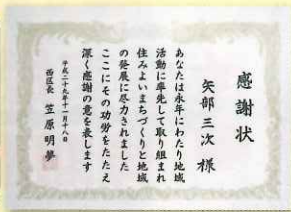 感謝状
矢部三次 様
あなたは永年にわたり地域
活動に率先して取り組まれ
住みよいまちづくりと地域
の発展に尽力されました
ここにその功労をたたえ
深く感謝の意を表します
平成二十九年十一月十八日
西区長 笠原明夢